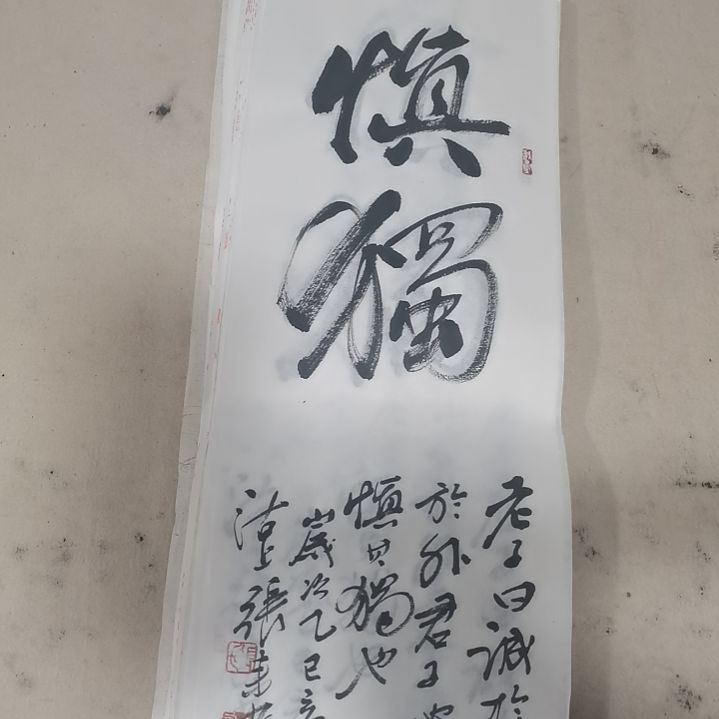 慎獨
老子曰誠於
於外君子
慎其獨也
歲次乙巳
張